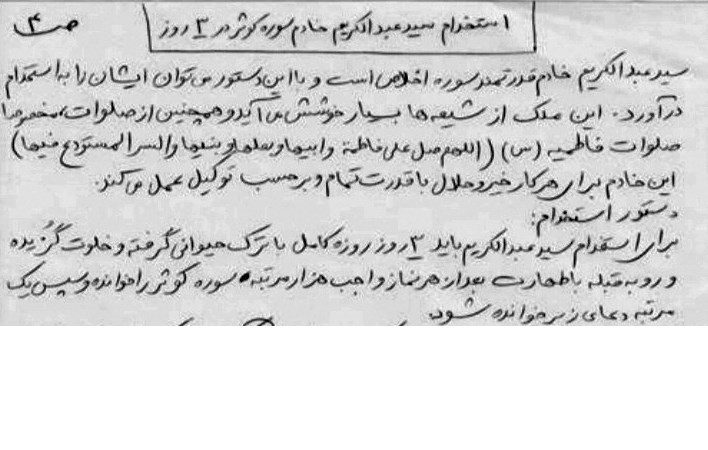 استخدام سید عبدالکریم خادم سوره کوثر در ۳ روز
ص ۴
سید عبدالکریم خادم قدرتمند سوره اخلاص است و با این دستور می توان ایشان را به استخدام
درآورد. این ملک از شیعه ها بسیار خوشش می آید و همچنین از صلوات، مخصوصا
صلوات فاطمیه (س) (اللهم صل علی فاطمة و ابیها و بعلها و بنیها والسر المستودع فیها)
این خادم برای هر کار خیر و حلال با قدرت تمام و بر حسب توکیل عمل می کند.
دستور استخدام:
برای استخدام سید عبدالکریم باید ۳ روز روزه کامل با ترک حیوانی گرفته و خلوت گزیده
و رو به قبله با طهارت بعد از هر نماز واجب هزار مرتبه سوره کوثر را خوانده و سپس یک
مرتبه دعای زیر خوانده شود.